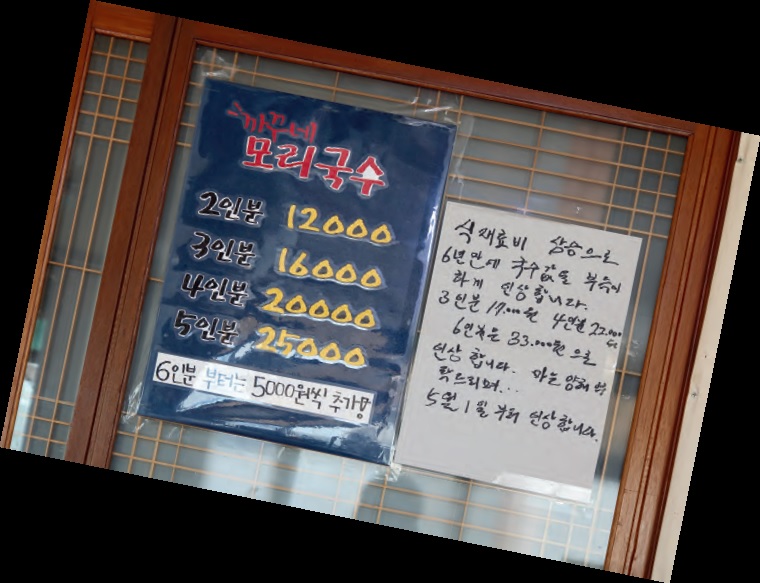 까꾸네
모리국수
2인분 12000
3인분 16000
4인분 20000
5인분 25000
6인분 부터는 5000원씩 추가용
식재료비 상승으로
6년만에 국수값을 부득이
하게 인상합니다.
3인분 17.000원 4인분 22.000
6인분은 33.000원 으로
인상 합니다. 많은 양해 부
탁드리며...
5월 1일 부터 인상합니다.